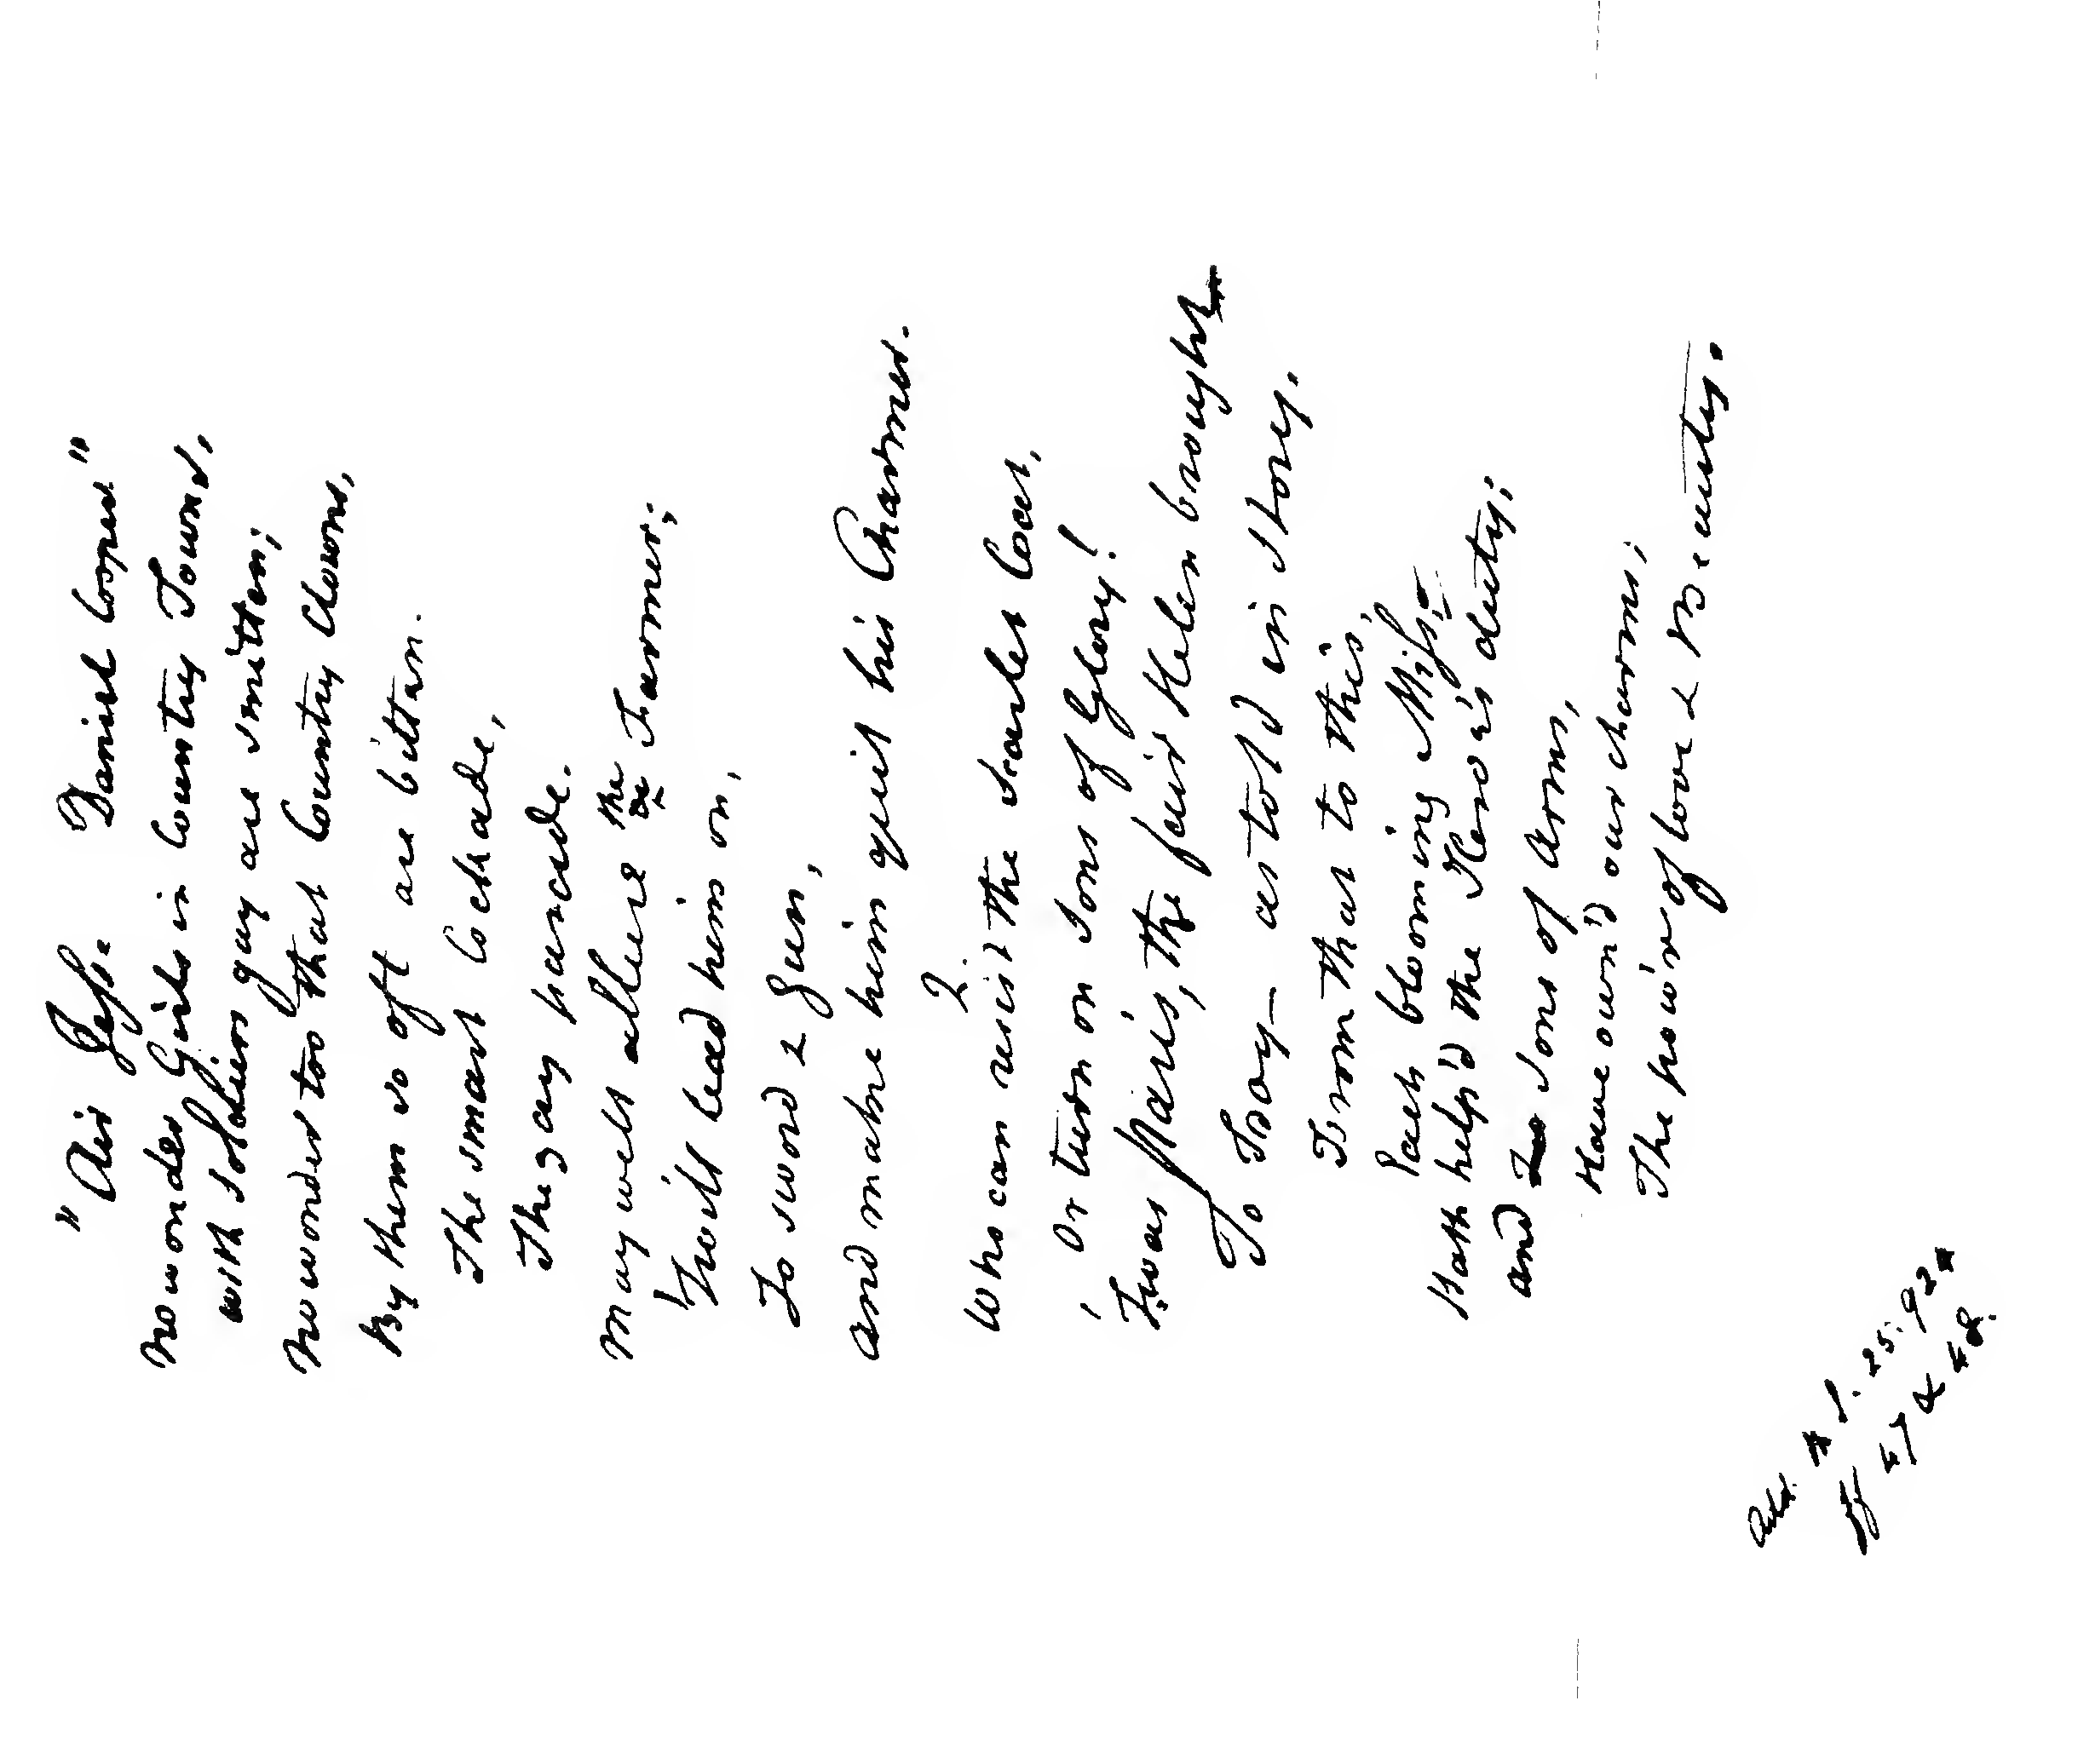 "Air Jesse Daniel Cooper"
No wonder Girls in Country Towns,
with soldiers gay are smitten;
No wonder too that Country Clowns,
By them so oft are bittan.
The smart Cockade,
The gay parade.
May well allure the Farmer;
'Twill lead him on,
To sword & Gun,
And make him quit his Charmer.
2.
Who can resist the scarlet Coat,
Or turn on sons of Glory!
'Twas Paris, the fair Helen brought
To Troy – as told in story.
From that to this,
Each blooming Miss,
Hath help'd the Hero's duty;
and sons of Arms,
Have own'd our charms;
The pow'r of love & Beauty.
Add. 1. 25. 92
47 & 48.